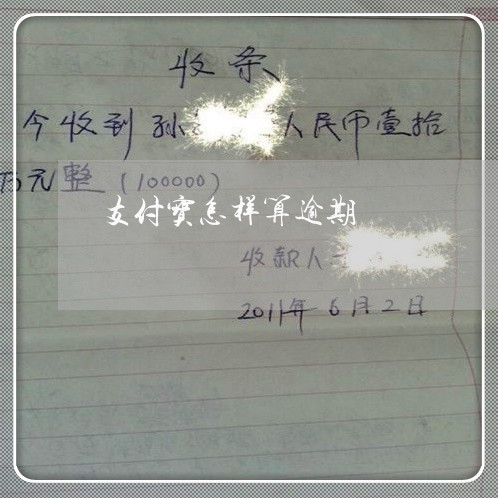 收条
今收到孙 人民币壹拾
万元整(100000)
支付宝怎样算逾期
收款人
2011年6月2日